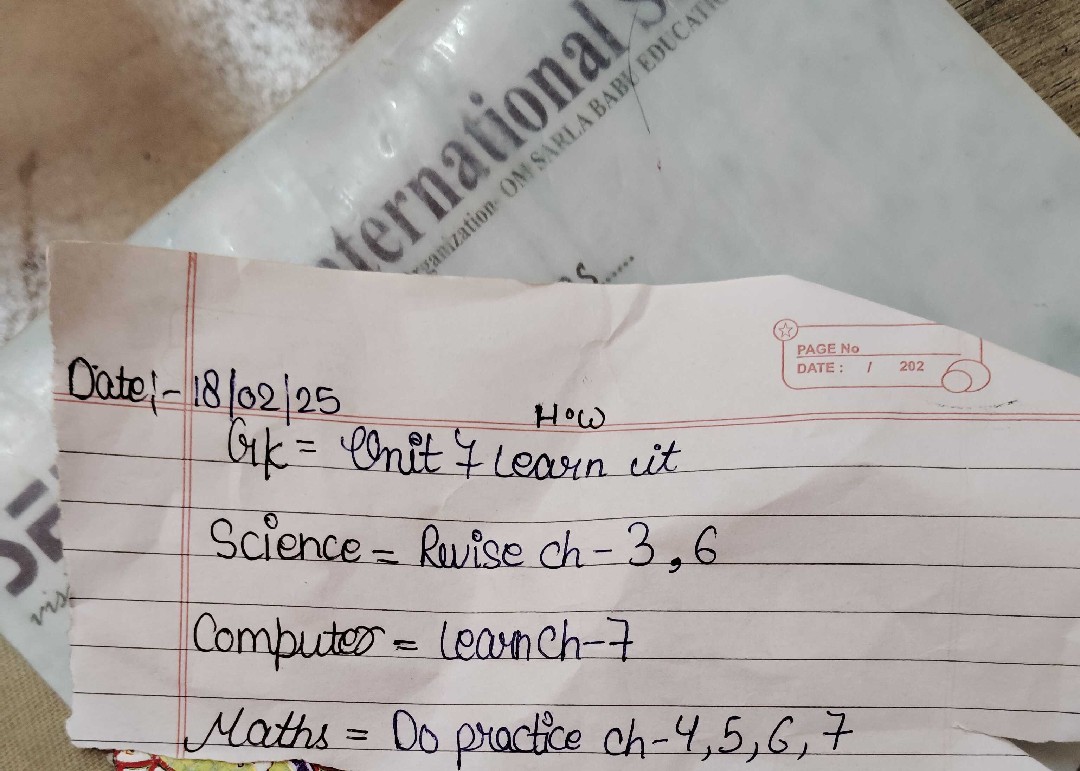 ternational S
rganization- OM SARLA BABU EDUCATI
PAGE No
DATE : / 202
Date:- 18/02/25
How
Gk = Unit 7 learn it
Science = Revise ch - 3, 6
Computer = learn ch-7
Maths = Do practice ch-4, 5, 6, 7